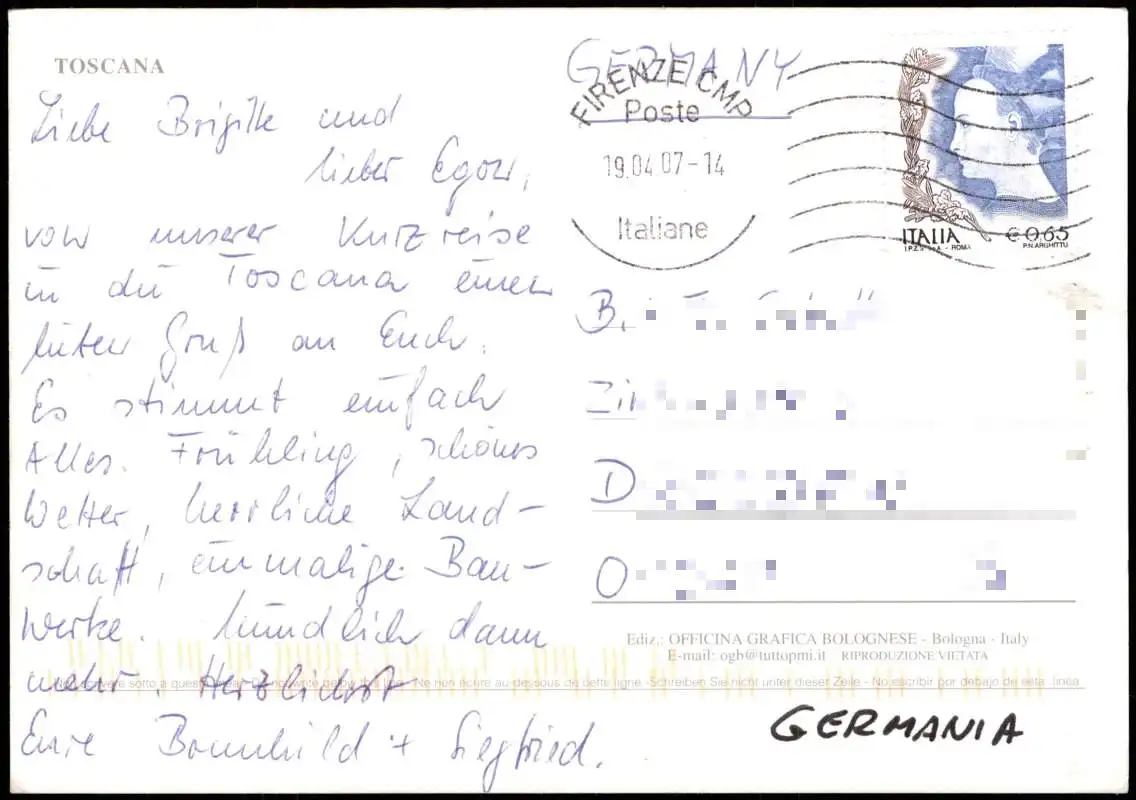 TOSCANA
Liebe Brigitte und
lieber Egon,
von unserer Kurzreise
in die Toscana einen
lieben Gruß an Euch.
Es stimmt einfach
Alles. Frühling, schönes
Wetter, herrliche Land-
schaft, einmalige Bau-
werke. Mündlich dann
mehr. Herzlichst
Eure Brunhild + Siegfried.
GERMANY
FIRENZE CMP
Poste
19.04.07-14
Italiane
ITALIA € 0,65
I.P.Z.S. S.p.A. - ROMA P.N. ARGHITTU
B
Zi
D
O
Ediz.: OFFICINA GRAFICA BOLOGNESE - Bologna - Italy
E-mail: ogb@tuttopmi.it RIPRODUZIONE VIETATA
Ne rien écrire au-dessous de cette ligne -Schreiben Sie nicht unter dieser Zeile - No escribir por debajo de esta linea
GERMANIA